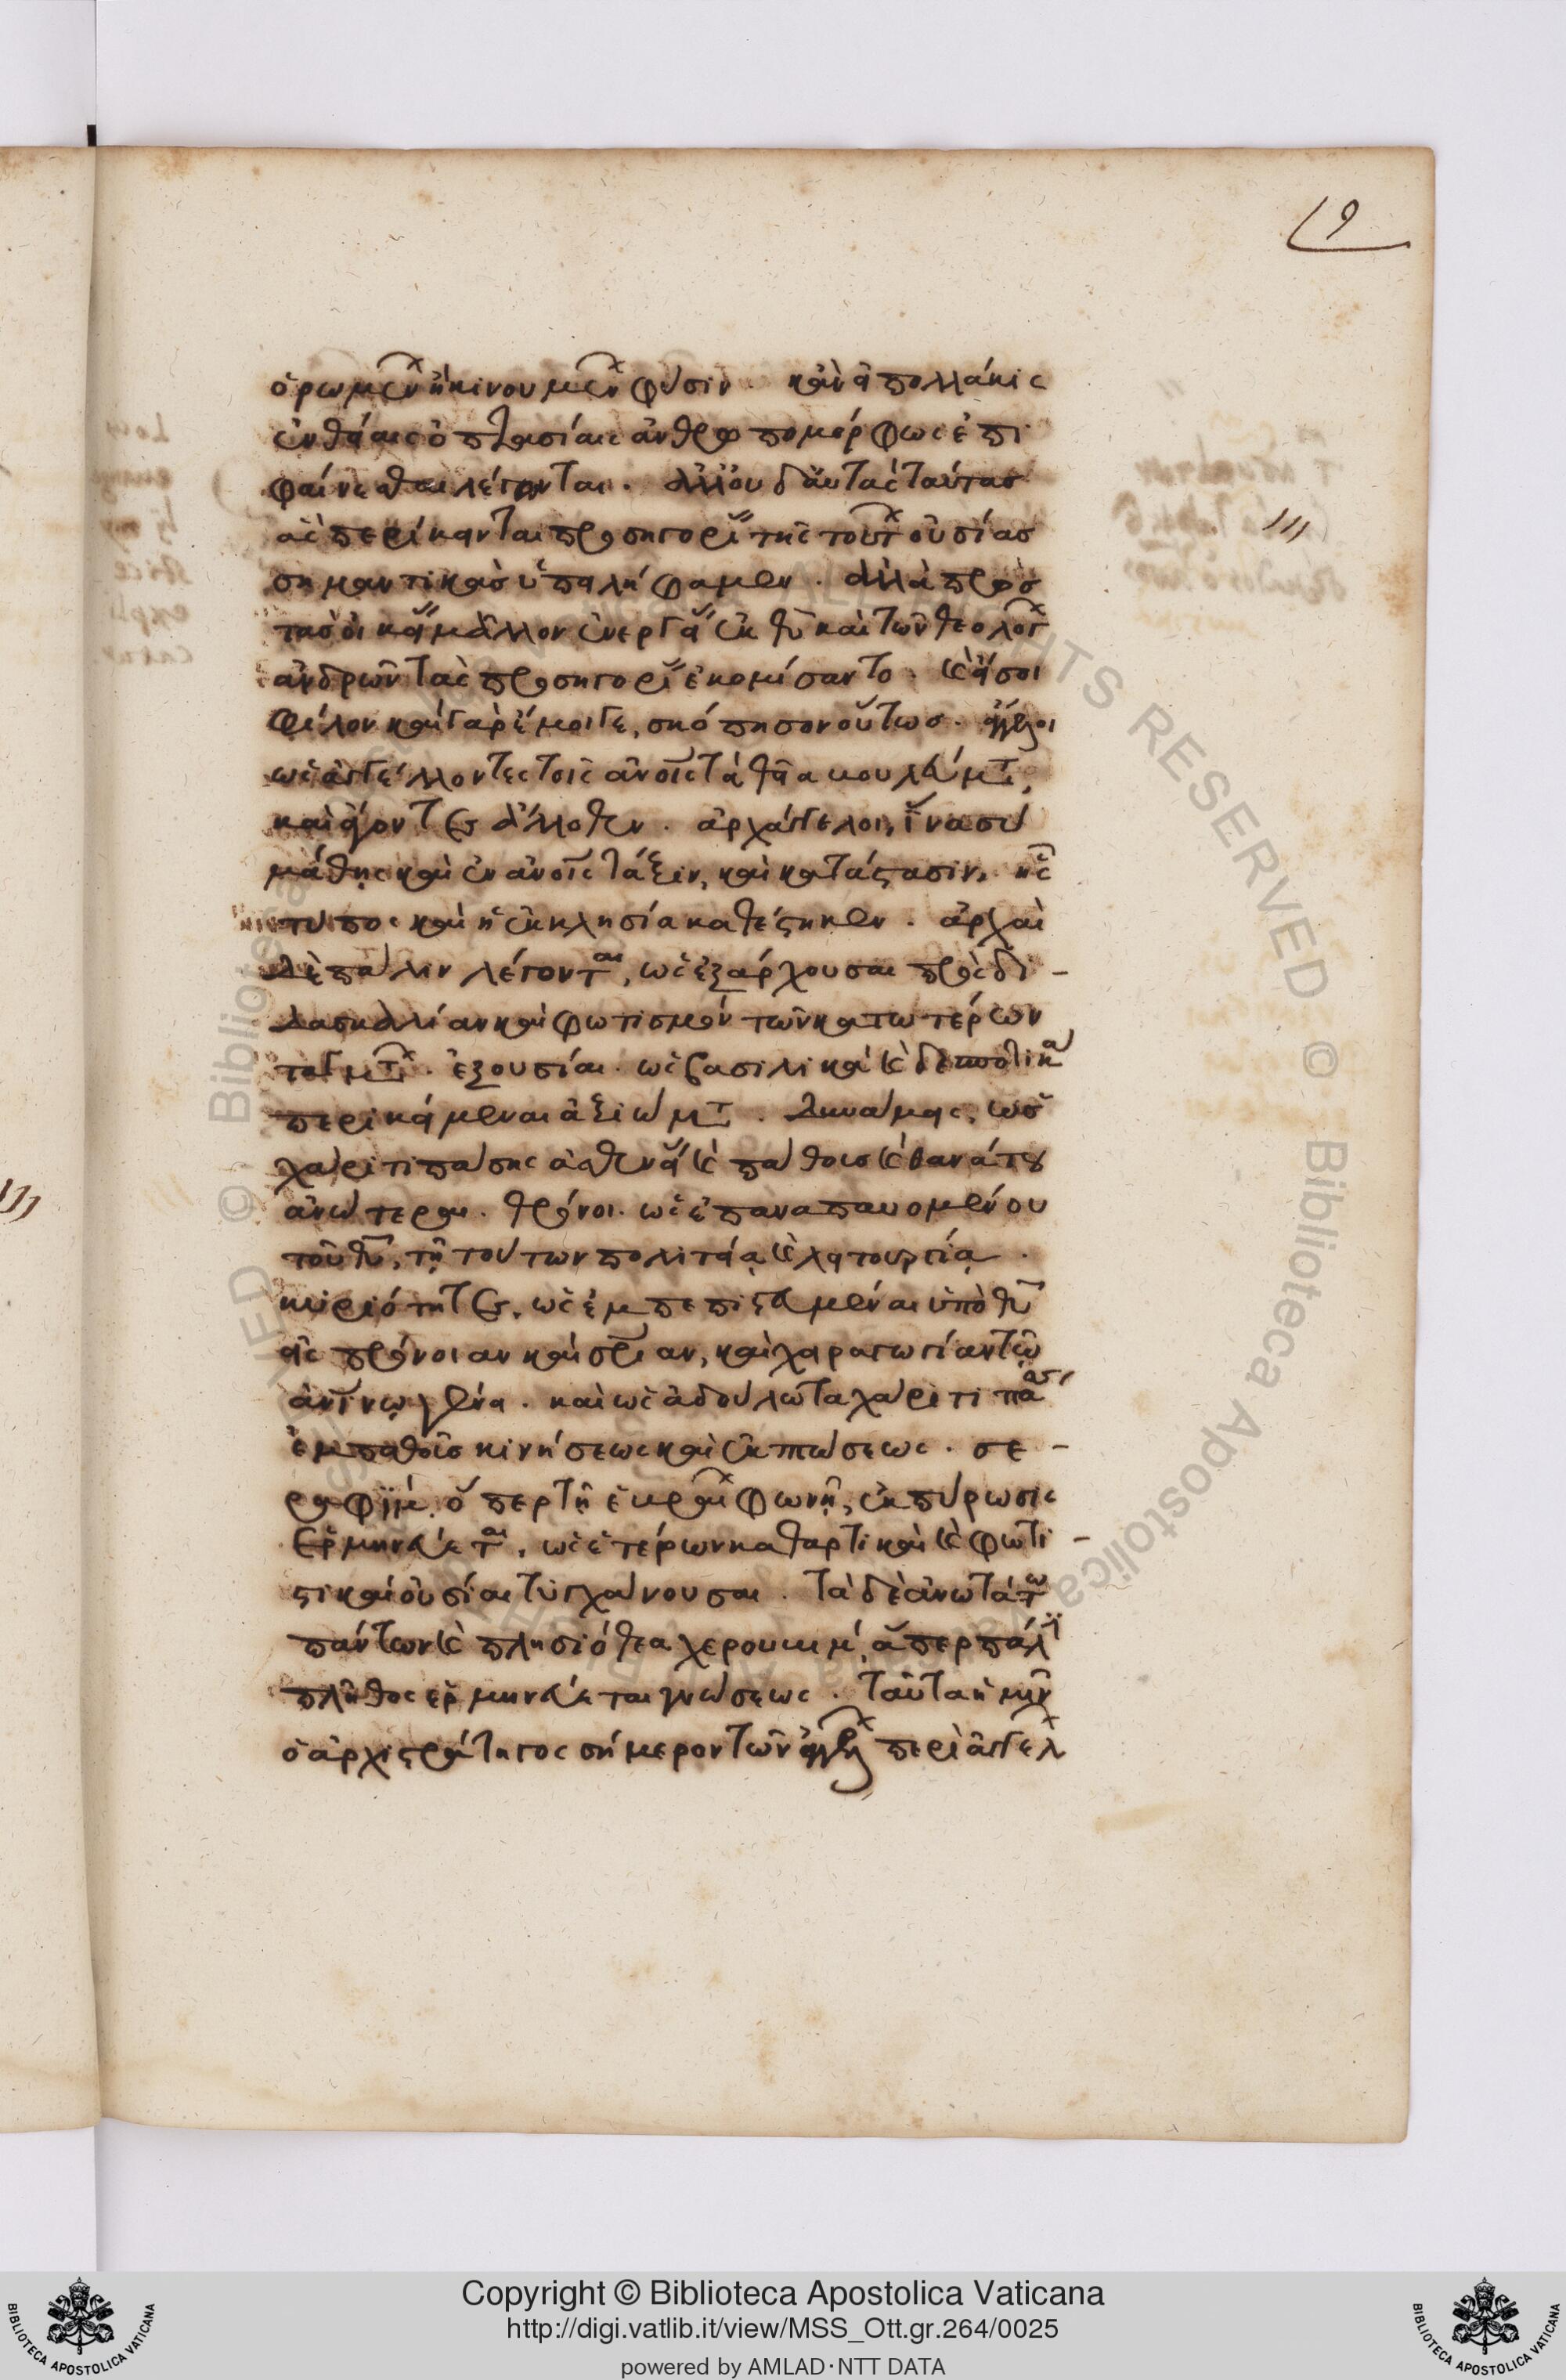 9
ὁρωμένην ἢ κινουμένην φύσιν. κἂν εἰ πολλάκις
ἐν θείαις ὀπτασίαις ἀνθρωπομόρφως ἐπι
φαίνεσθαι λέγονται. ἀλλ' οὐδ' αὐτὰς ταύτας
ἃς περίκεινται προσηγορίας τῆς τούτων οὐσίας
σημαντικὰς ὑπειλήφαμεν. ἀλλὰ πρὸς
τὰς οἰκείας μᾶλλον ἐνεργείας ἐκ θυ καὶ τῶν θεολόγων
ἀνδρῶν τὰς προσηγορίας ἐκομίσαντο. καὶ εἴ σοι
φίλον καὶ γὰρ ἔμοιγε, σκόπησον οὕτως. ἄγγελοι
ὡς ἀγγέλλοντες τοῖς ἀνοις τὰ θεῖα βουλεύματα,
καὶ ἄγοντες ἄλλοθεν. ἀρχάγγελοι, ἵνα συ
μάθῃς καὶ ἐν ἀνοις τάξιν, καὶ κατάστασιν, ἧς
τύπος καὶ ἡ ἐκκλησία καθέστηκεν. ἀρχαὶ
δὲ πάλιν λέγονται, ὡς ἐξάρχουσαι πρὸς δι-
δασκαλίαν καὶ φωτισμὸν τῶν κατωτέρων
ταγμάτων. ἐξουσίαι. ὡς βασιλικὰ καὶ δεσποτικὰ
περικείμεναι ἀξιώματα. δυνάμεις, ὡς
χάριτι πάσης ἀσθενείας καὶ πάθους καὶ θανάτου
ἀνώτεραι. θρόνοι. ὡς ἐπαναπαυομένου
τοῦ θυ, τῇ τούτων πολιτείᾳ καὶ λειτουργίᾳ.
κυριότητες, ὡς ἐμπεπιστευμέναι ὑπὸ θυ
εἰς πρόνοιαν καὶ σριαν, καὶ χειραγωγίαν τῶν
ἀνίνων γένει. καὶ ὡς ἀδούλωτα χάριτι πάσης
ἐμπαθοῦς κινήσεως καὶ ἐκπτώσεως. σε-
ραφὶμ, ὅπερ τῇ ἑβραίων φωνῇ, ἐκπύρωσις
ἑρμηνεύεται, ὡς ἑτέρων καθαρτικαὶ καὶ φωτι-
στικαὶ οὐσίαι τυγχάνουσαι. τὰ δὲ ἀνωτάτω
πάντων καὶ πλησιόθεα χερουβίμ, ἅπερ πάλιν
πλῆθος ἑρμηνεύεται γνώσεως. ταῦτα ἡμῖν
ὁ ἀρχιστράτηγος σήμερον τῶν ἀγγέλων περιαγγέλ
Copyright © Biblioteca Apostolica Vaticana
http://digi.vatlib.it/view/MSS_Ott.gr.264/0025
powered by AMLAD·NTT DATA